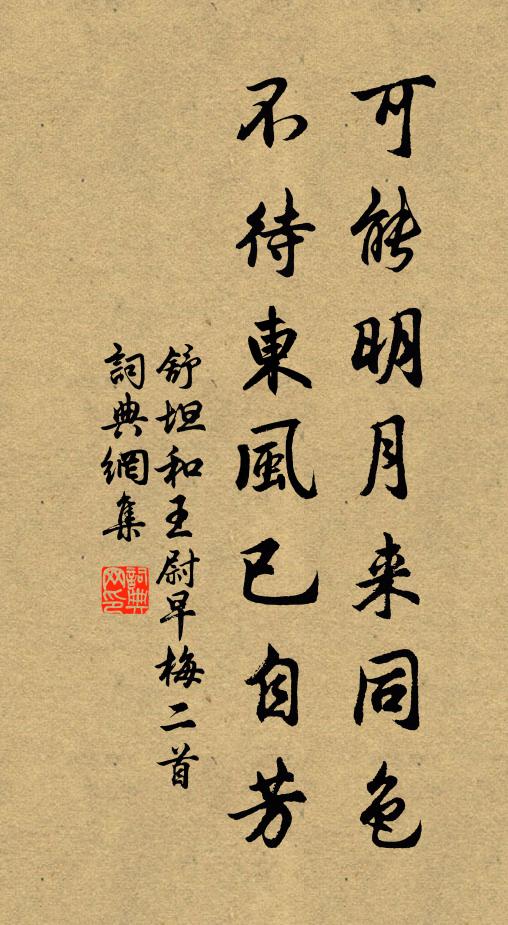 可能明月来同色
不待東風已自芳
舒坦和王尉早梅二首
詞典網集
詞典网印